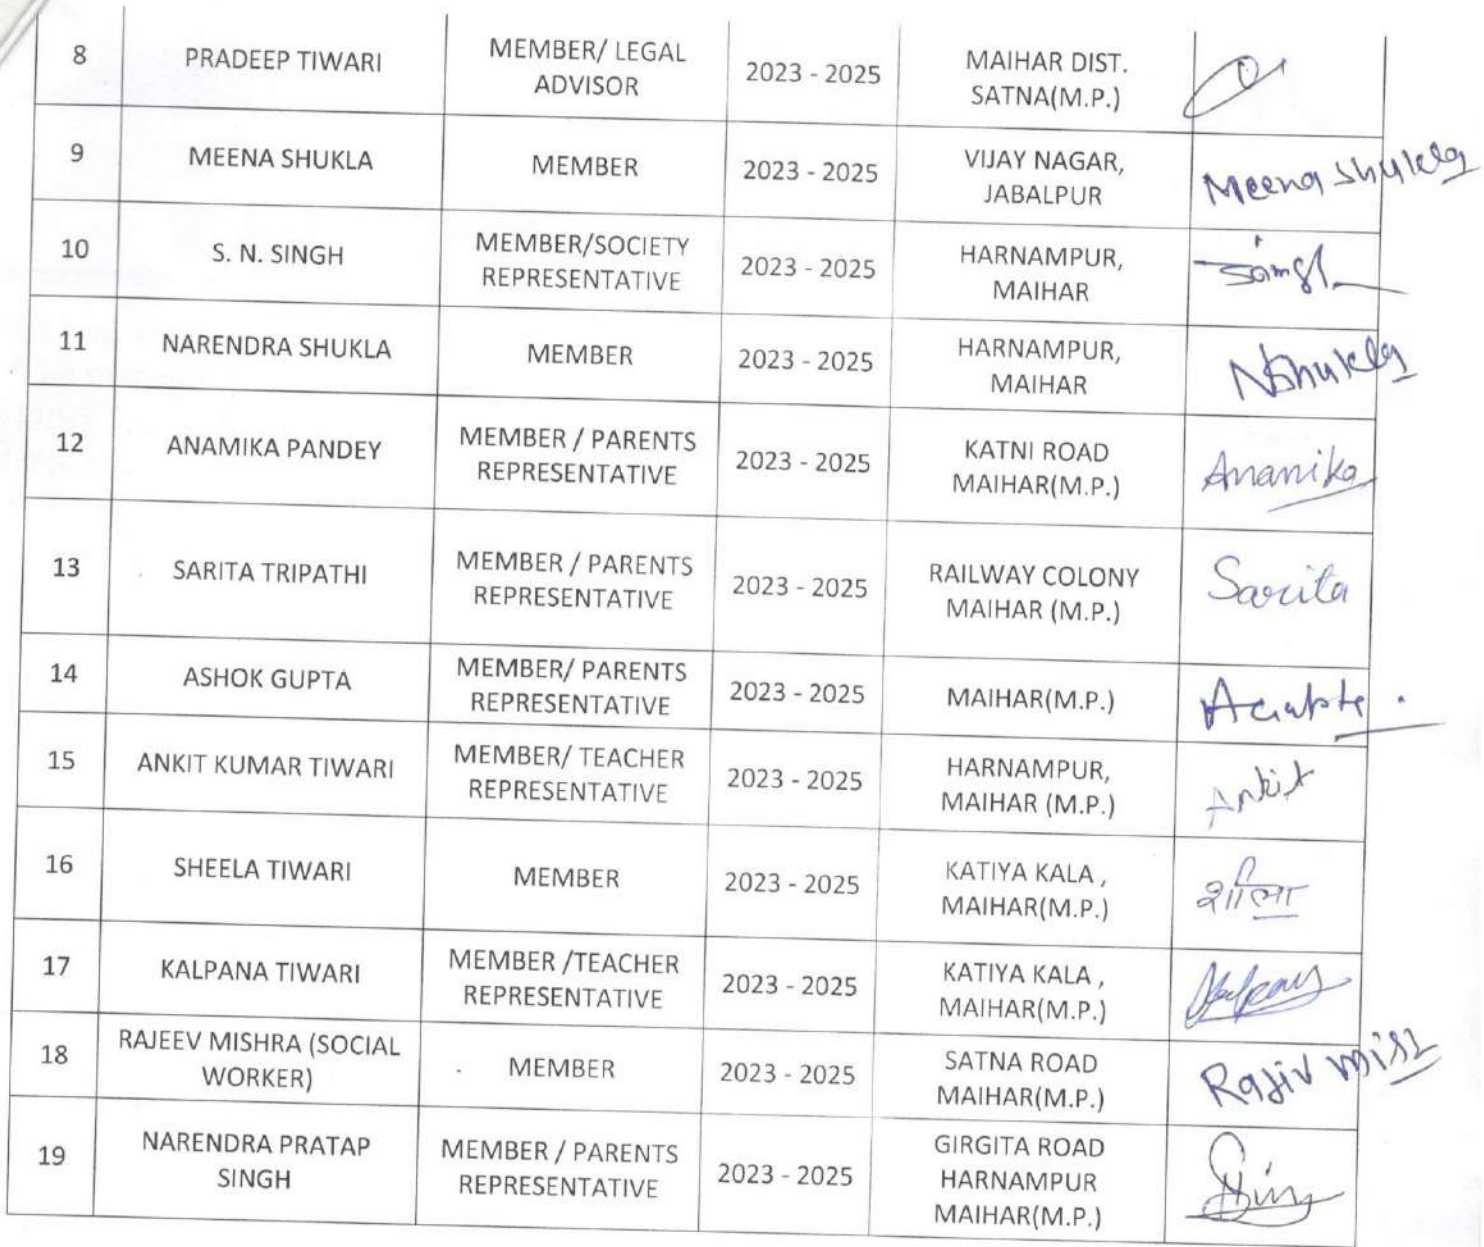 8 PRADEEP TIWARI MEMBER/ LEGAL ADVISOR 2023 - 2025 MAIHAR DIST. SATNA(M.P.)
9 MEENA SHUKLA MEMBER 2023 - 2025 VIJAY NAGAR, JABALPUR Meena Shukla
10 S. N. SINGH MEMBER/SOCIETY REPRESENTATIVE 2023 - 2025 HARNAMPUR, MAIHAR
11 NARENDRA SHUKLA MEMBER 2023 - 2025 HARNAMPUR, MAIHAR NShukla
12 ANAMIKA PANDEY MEMBER / PARENTS REPRESENTATIVE 2023 - 2025 KATNI ROAD MAIHAR(M.P.) Anamika
13 SARITA TRIPATHI MEMBER / PARENTS REPRESENTATIVE 2023 - 2025 RAILWAY COLONY MAIHAR (M.P.) Sarita
14 ASHOK GUPTA MEMBER/ PARENTS REPRESENTATIVE 2023 - 2025 MAIHAR(M.P.)
15 ANKIT KUMAR TIWARI MEMBER/ TEACHER REPRESENTATIVE 2023 - 2025 HARNAMPUR, MAIHAR (M.P.) Ankit
16 SHEELA TIWARI MEMBER 2023 - 2025 KATIYA KALA , MAIHAR(M.P.) शीला
17 KALPANA TIWARI MEMBER /TEACHER REPRESENTATIVE 2023 - 2025 KATIYA KALA , MAIHAR(M.P.)
18 RAJEEV MISHRA (SOCIAL WORKER) MEMBER 2023 - 2025 SATNA ROAD MAIHAR(M.P.) Rajiv
19 NARENDRA PRATAP SINGH MEMBER / PARENTS REPRESENTATIVE 2023 - 2025 GIRGITA ROAD HARNAMPUR MAIHAR(M.P.)